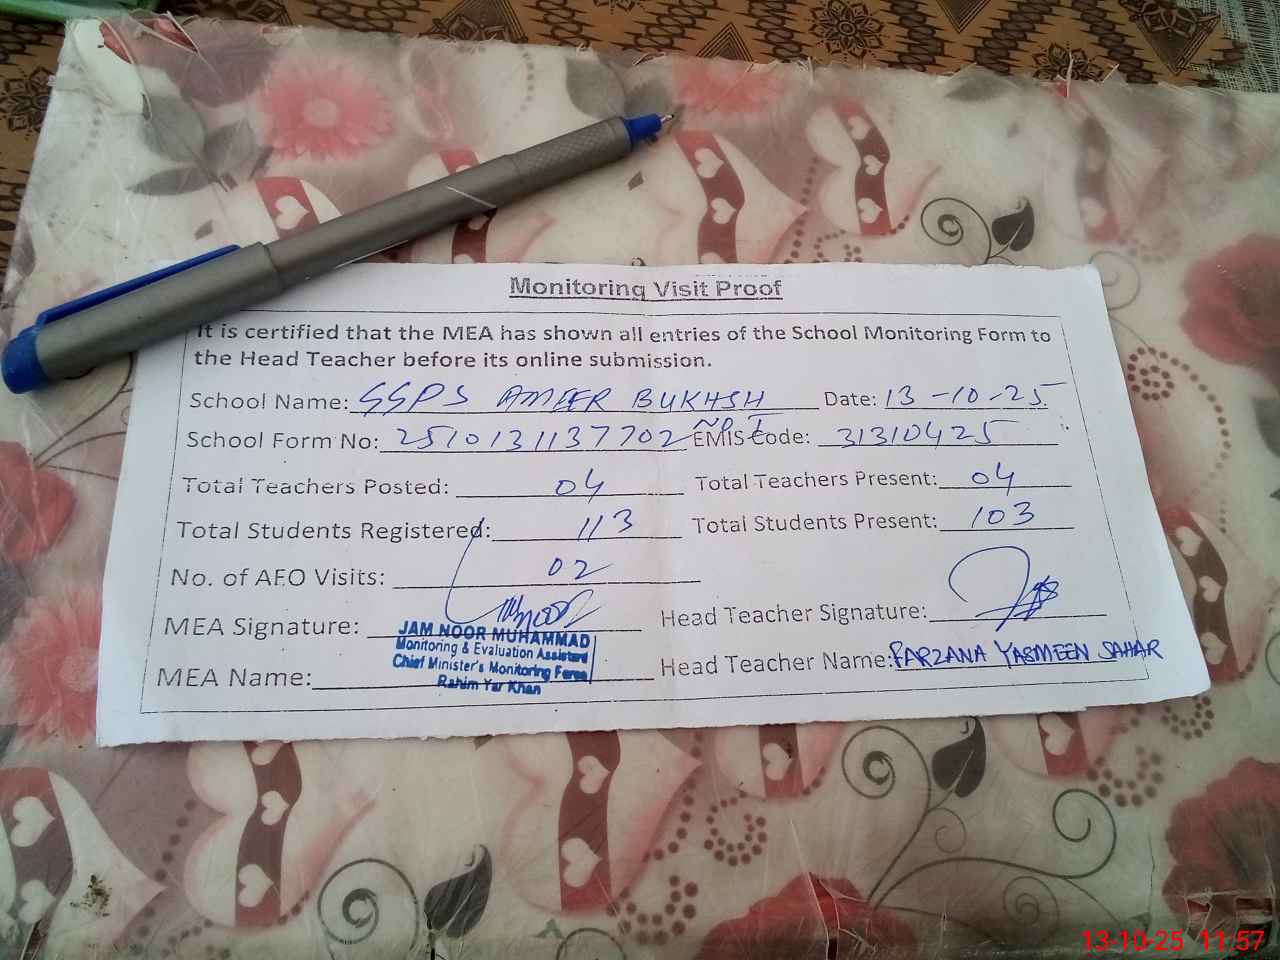 Monitoring Visit Proof
It is certified that the MEA has shown all entries of the School Monitoring Form to
the Head Teacher before its online submission.
School Name: GGPS AMEER BUKHSH Date: 13-10-25
NO I
School Form No: 2510131137702 EMIS Code: 31310425
Total Teachers Posted: 04 Total Teachers Present: 04
Total Students Registered: 113 Total Students Present: 103
No. of AEO Visits: 02
MEA Signature: Head Teacher Signature:
JAM NOOR MUHAMMAD
Monitoring & Evaluation Assistant
Chief Minister's Monitoring Force
Rahim Yar Khan
MEA Name: Head Teacher Name: FARZANA YASMEEN SAHAR
13-10-25 11:57